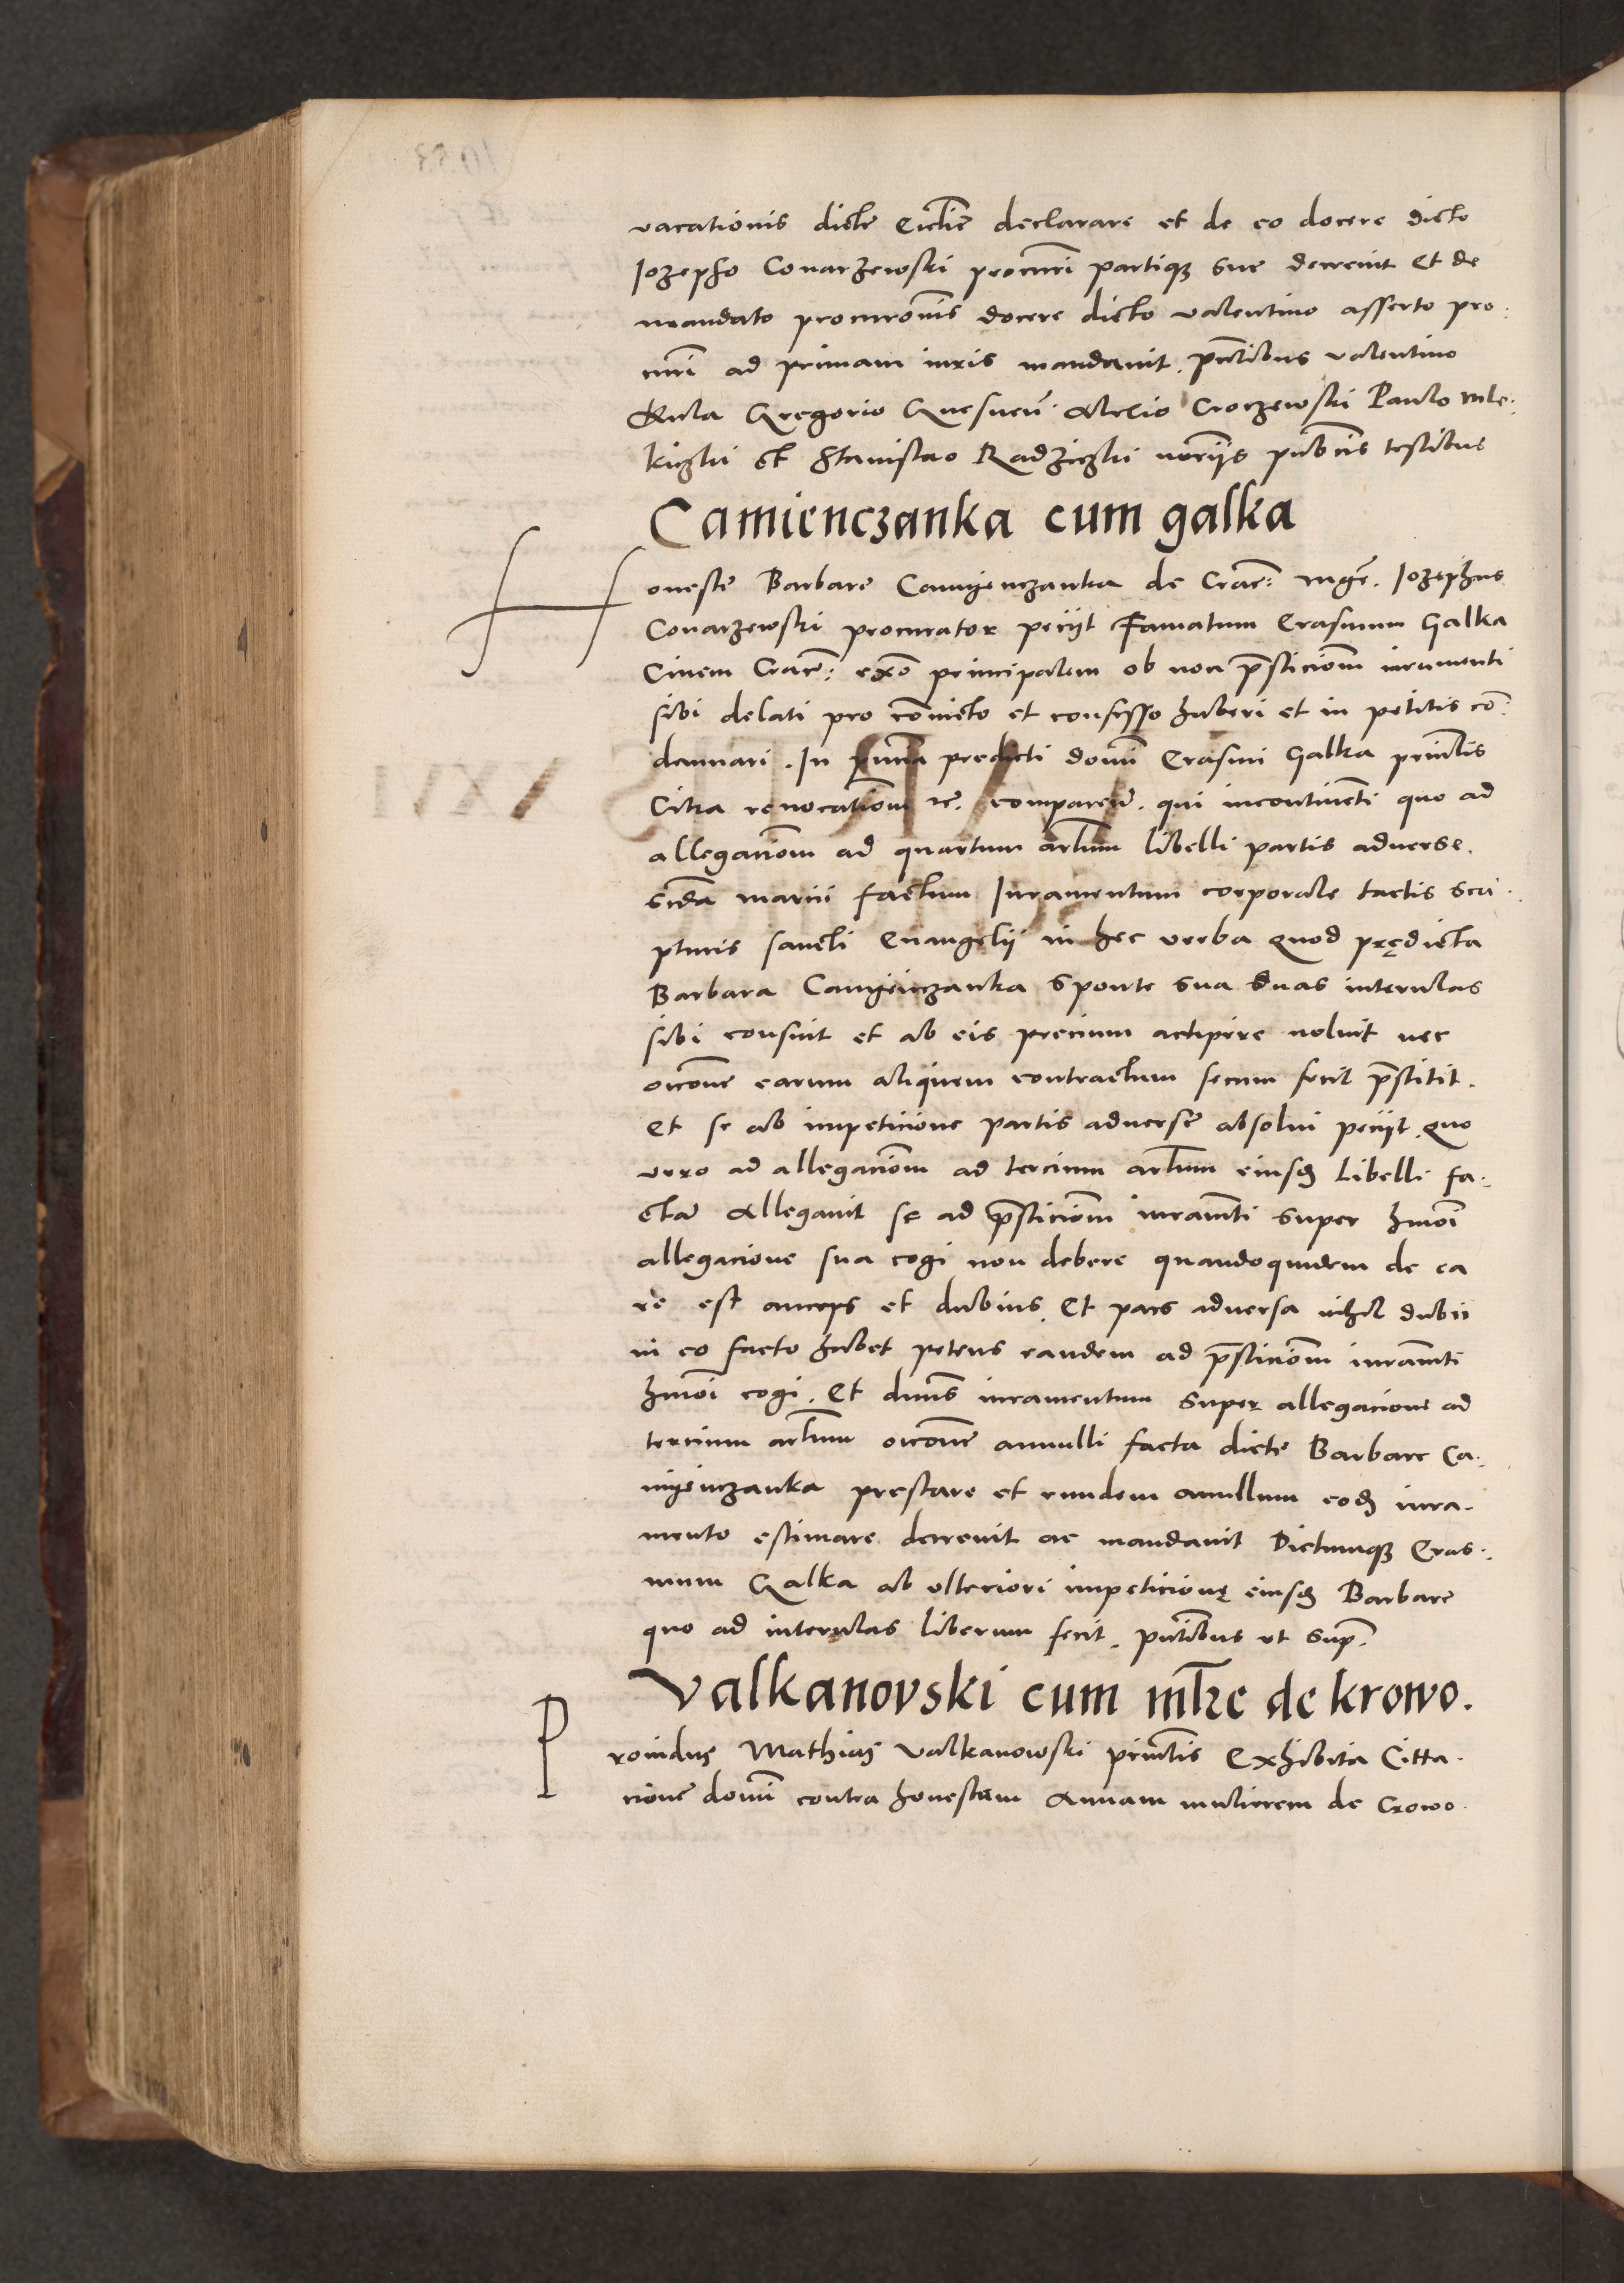 vacationis dicte Ecclie declarare et de eo docere dicto
Iozepho Conarzewski procuri partiqȝ sue decrevit Et de
mandato procuronis docere dicto valentino asserto pro
curi ad primam iuris mandavit. pntibus valentino
Kula Gregorio Alexio Croczewski Paulo
et Stanislao Radziczki notriis publicis testibus
Camienczanka cum galka
Honeste Barbare Camyenczanka de Crac: mgre. Iozephus
Conarzewski procurator peciit Famatum Erasmum Galka
Civem Crac: exo principalem ob non prsticiom iurumenti
sibi delati pro convicto et confesso haberi et in petitis co
demnari. In pntia predicti domi Erasmi Galka printlis
Citra revocatiom rc. comparen. qui incontinenti quo ad
allegaciom ad quartum artlum libelli partis adverse.
scda marcii factum Iuramentum corporale tactis scri
pturis sancti Evangelii in hec verba quod prędicta
Barbara Camyenczanka sponte sua duas interulas
sibi consuit et ab eis precium accipere noluit nec
occone earum aliquem contractum secum fecit prstitit.
et se ab impeticione partis adverse absolvi peciit. quo
vero ad allegaciom ad tercium artlum eiusd Libelli fa
cta Allegavit se ad prsticiom iuramti super hmoi
allegacione sua cogi non debere quandoquidem de ea
re est anceps et dubius. Et pars adversa nihil dubii
in eo facto habet petens eandem ad prsticiom iuramti
hmoi cogi. Et dnus iuramentum super allegacione ad
tercium artlum occone annulli facta dicte Barbare Ca
myenczanka prestare et eundem annullum eod iura
mento estimare decrevit ac mandavit Dictumqȝ Eras
mum Galka ab ulteriori impeticionę eiusd Barbare
quo ad interulas liberum fecit. pntibus ut sup.
Valkanovski cum mlre de krowo.
Providus Mathias Valkanowski printlis Exhibita Citta
cione domi contra honestam Annam mulierem de Crowo